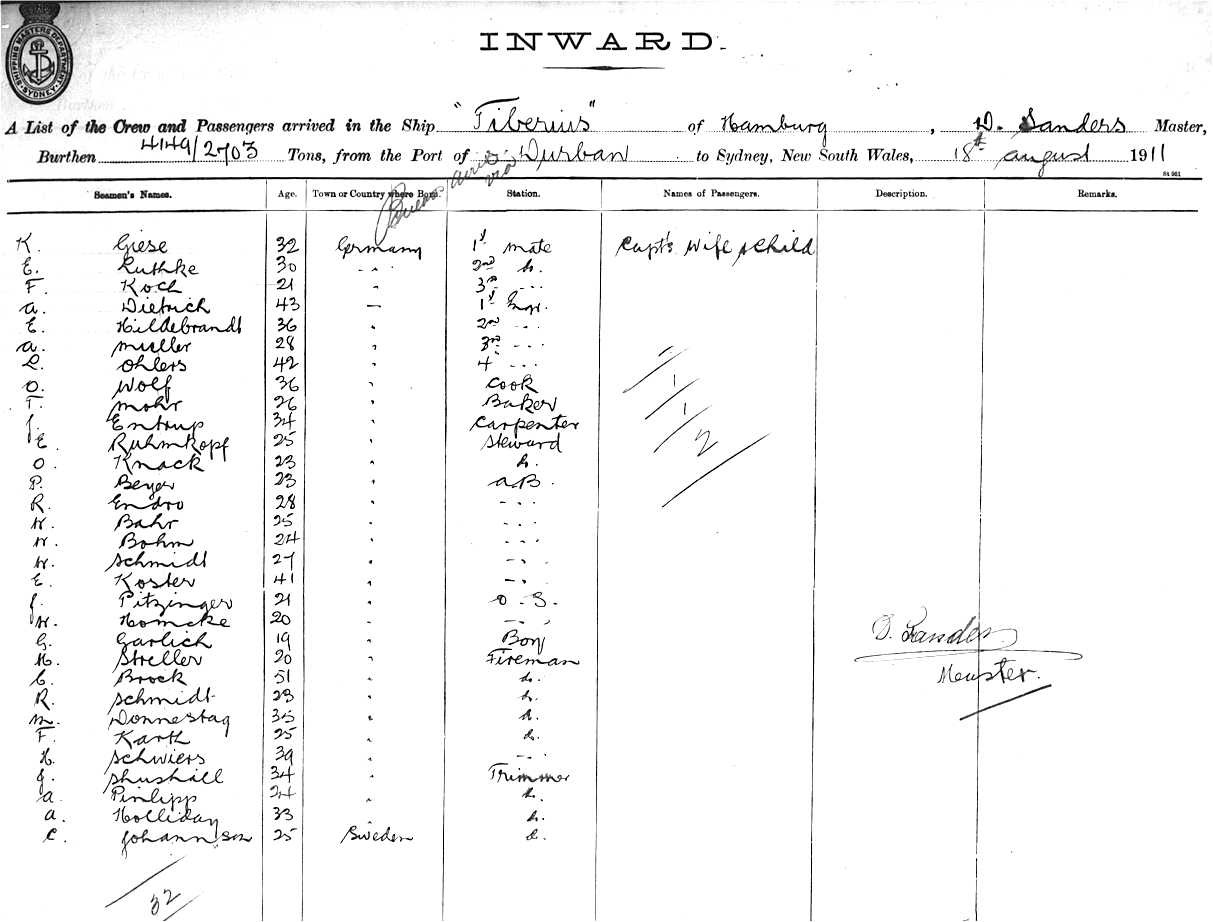 SHIPPING MASTERS DEPARTMENT SYDNEY
INWARD.
A List of the Crew and Passengers arrived in the Ship "Tiberius" of Hamburg, D. Sanders Master,
Burthen 4149/2703 Tons, from the Port of Buenos Aires via Durban to Sydney, New South Wales, 18th August 1911
Seamen's Names. Age. Town or Country where Born. Station. Names of Passengers. Description. Remarks.
K. Giese 32 Germany 1st mate Capt's wife & child
E. Ruthke 30 " 2nd do.
F. Koch 21 " 3rd "
A. Dietrich 43 — 1st Engr.
E. Hildebrandt 36 " 2nd "
A. Muller 28 " 3rd "
L. Ohlers 42 " 4 "
O. Wolf 36 " Cook
T. Mohr 26 " Baker
J. Entrup 34 " Carpenter
E. Ruhmkopf 25 " Steward
O. Knack 23 " do.
P. Beyer 23 " A.B.
R. Endro 28 " "
W. Bahr 25 " "
W. Bohm 24 " "
W. Schmidt 27 " "
E. Koster 41 " "
J. Pitzinger 21 " O.S.
W. Homcke 20 " "
G. Garlich 19 " Boy
H. Streller 20 " Fireman
C. Brock 51 " do.
R. Schmidt 23 " do.
M. Donnestag 35 " do.
F. Karth 25 " do.
H. Schwiers 39 " "
J. Shushill 34 " Trimmer
A. Pinlipp 24 " do.
A. Holliday 33 " do.
C. Johannson 25 Sweden do.
1
1
2
D. Sanders
Master.
32